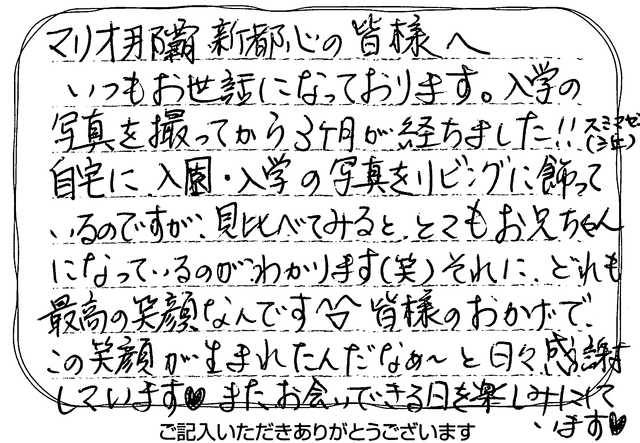 マリオ那覇新都心の皆様へ
いつもお世話になっております。入学の
写真を撮ってから3ケ月が経ちました!!スミマセン
自宅に入園・入学の写真をリビングに飾って
いるのですが、見比べてみると、とてもお兄ちゃん
になっているのがわかります(笑)それに、どれも
最高の笑顔なんです^^皆様のおかげで、
この笑顔が生まれたんだなぁ〜と日々感謝
しています♥また、お会いできる日を楽しみにして
います♥
ご記入いただきありがとうございます